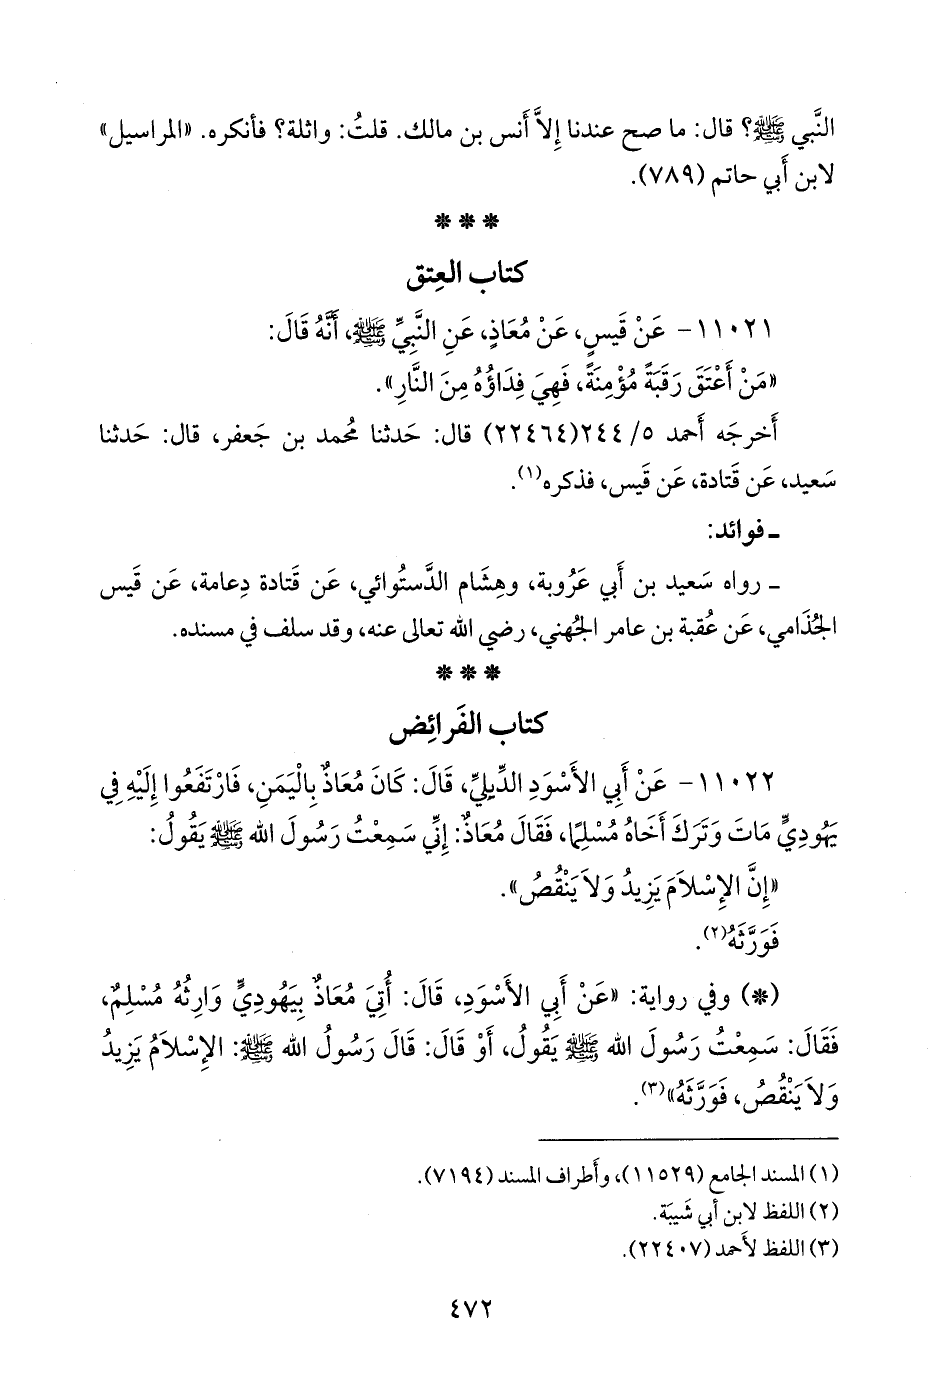 النَّبي ﷺ؟ قال: ما صح عندنا إِلاَّ أَنس بن مالك. قلتُ: واثلة؟ فأنكره. «المراسيل»
لابن أَبي حاتم (٧٨٩).
* * *
كتاب العِتق
١١٠٢١- عَنْ قَيسٍ، عَنْ مُعَاذٍ، عَنِ النَّبِيِّ ﷺ، أَنَّهُ قَالَ:
«مَنْ أَعْتَقَ رَقَبَةً مُؤْمِنَةً، فَهِيَ فِدَاؤُهُ مِنَ النَّارِ».
أَخرجَه أَحمد ٥/ ٢٤٤(٢٢٤٦٤) قال: حَدثنا مُحمد بن جَعفر، قال: حَدثنا
سَعيد، عَن قَتادة، عَن قَيس، فذكره(١).
ـ فوائد:
ـ رواه سَعيد بن أَبي عَرُوبة، وهِشَام الدَّستُوائي، عَن قَتادة دِعامة، عَن قَيس
الجُذَامي، عَن عُقبة بن عامر الجُهني، رضي الله تعالى عنه، وقد سلف في مسنده.
* * *
كتاب الفَرائِض
١١٠٢٢- عَنْ أَبِي الأَسْوَدِ الدِّيلِيِّ، قَالَ: كَانَ مُعَاذٌ بِالْيَمَنِ، فَارْتَفَعُوا إِلَيْهِ فِي
يَهُودِيٍّ مَاتَ وَتَرَكَ أَخَاهُ مُسْلِمًا، فَقَالَ مُعَاذٌ: إِنِّي سَمِعْتُ رَسُولَ الله ﷺ يَقُولُ:
«إِنَّ الإِسْلاَمَ يَزِيدُ وَلاَ يَنْقُصُ».
فَوَرَّثَهُ(٢).
(*) وفي رواية: «عَنْ أَبِي الأَسْوَدِ، قَالَ: أُتِيَ مُعَاذٌ بِيَهُودِيٍّ وَارِثُهُ مُسْلِمٌ،
فَقَالَ: سَمِعْتُ رَسُولَ الله ﷺ يَقُولُ، أَوْ قَالَ: قَالَ رَسُولُ الله ﷺ: الإِسْلاَمُ يَزِيدُ
وَلاَ يَنْقُصُ، فَوَرَّثَهُ»(٣).
(١) المسند الجامع (١١٥٢٩)، وأَطراف المسند (٧١٩٤).
(٢) اللفظ لابن أَبي شَيبَة.
(٣) اللفظ لأَحمد (٢٢٤٠٧).
٤٧٢